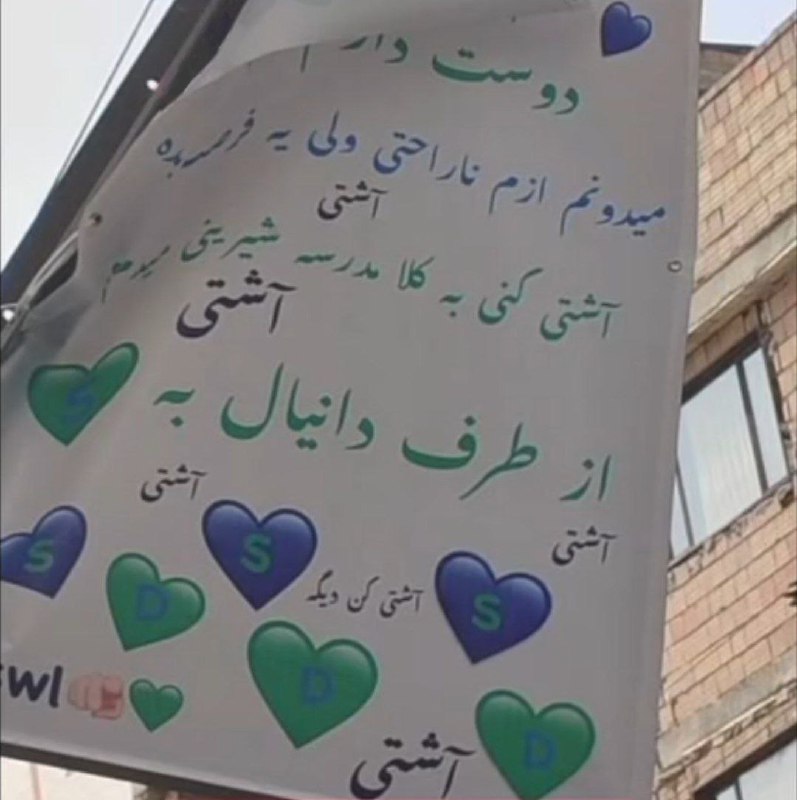 دوست دارم
میدونم ازم ناراحتی ولی یه فرصت بده
آشتی
آشتی کنی به کلا مدرسه شیرینی میدم
آشتی
از طرف دانیال به S
آشتی
آشتی
S
S
D
آشتی کن دیگه
S
D
D
آشتی